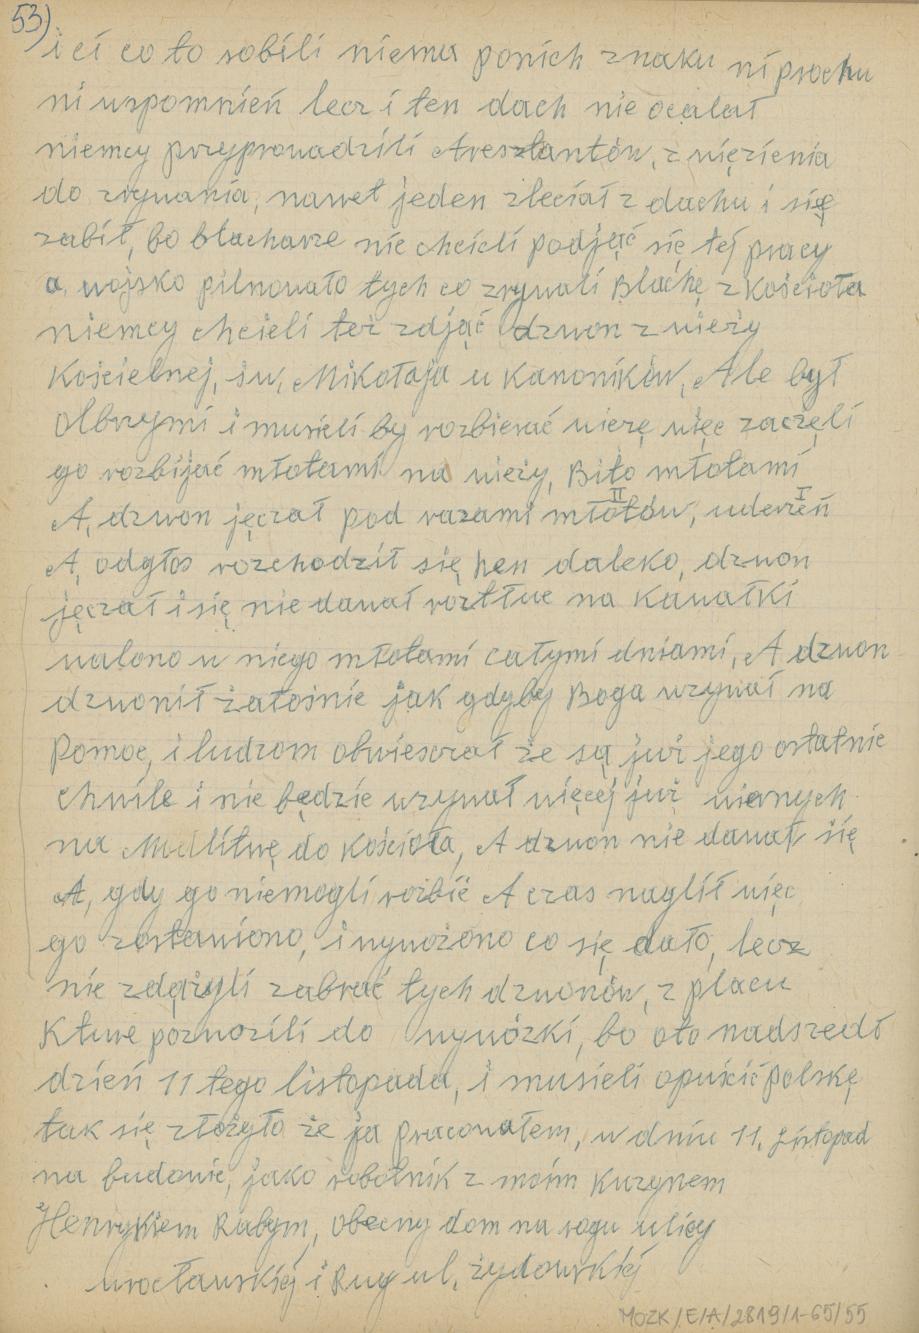 53)
i ci co to sobili niema ponich znaku ni prochu
ni uspomnień lecz i ten dach nie ocalał
niemcy przyprowadzili Aresztantów, z więzienia
do zrywania, nawet jeden zleciał z dachu i się
zabił, bo blacharze nie chcieli podjąć się tej pracy
a, wojsko pilnowało tych co zrywali Blachę z Kościoła
niemcy chcieli też zdjąć dzwon z wieży
Kościelnej, św, Mikołaja u Kanoników, Ale był
Olbrzymi i musieli by rozbierać wierzę więc zaczęli
go rozbijać młotami na wieży, Biło młotami
A, dzwon jęczał pod razami młotów, II uderzeń I
A, odgłos rozchodził się hen daleko, dzwon
jęczał i się nie dawał roztłuc na Kawałki
walono w niego młotami całymi dniami, A dzwon
dzwonił żałośnie jak gdyby Boga wzywał na
Pomoc, i ludzom obwieszczał że są już jego ostatnie
chwile i nie będzie wzywał więcej już wiernych
na Modlitwę do Kościoła, A dzwon nie dawał się
A, gdy go niemogli rozbić A czas naglił więc
go zostawiono, i wywożono co się dało, lecz
nie zdążyli zabrać tych dzwonów, z placu
Kture poznozili do wywózki, bo oto nadszedł
dzień 11 tego listopada, i musieli opuścić Polskę
tak się złożyło że ja pracowałem, w dniu 11, Listopad
na budowie, jako robotnik z moim Kuzynem
Henrykiem Rabym, obecny dom na rogu ulicy
wrocławskiej i Rug ul, żydowskiej
MOZK/E/A/2819/1-65/55